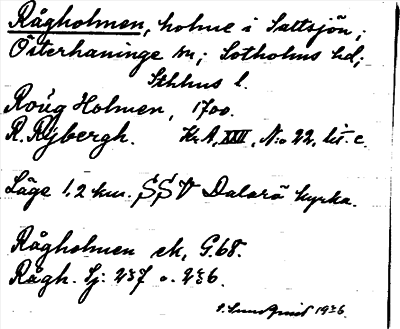 Rågholmen, holme i Saltsjön;
Österhaninge sn; Sotholms hd;
Sthlms l.
Roug Holmen, 1700.
R. Rÿbergh. Kr. A, XXII, N:o 22, lit. c.
Läge 1,2 km. SSV Dalarö kyrka.
Rågholmen ek, G. 68.
Rågh. Sj: 237 o. 236.
S. Lundqvist 1926.